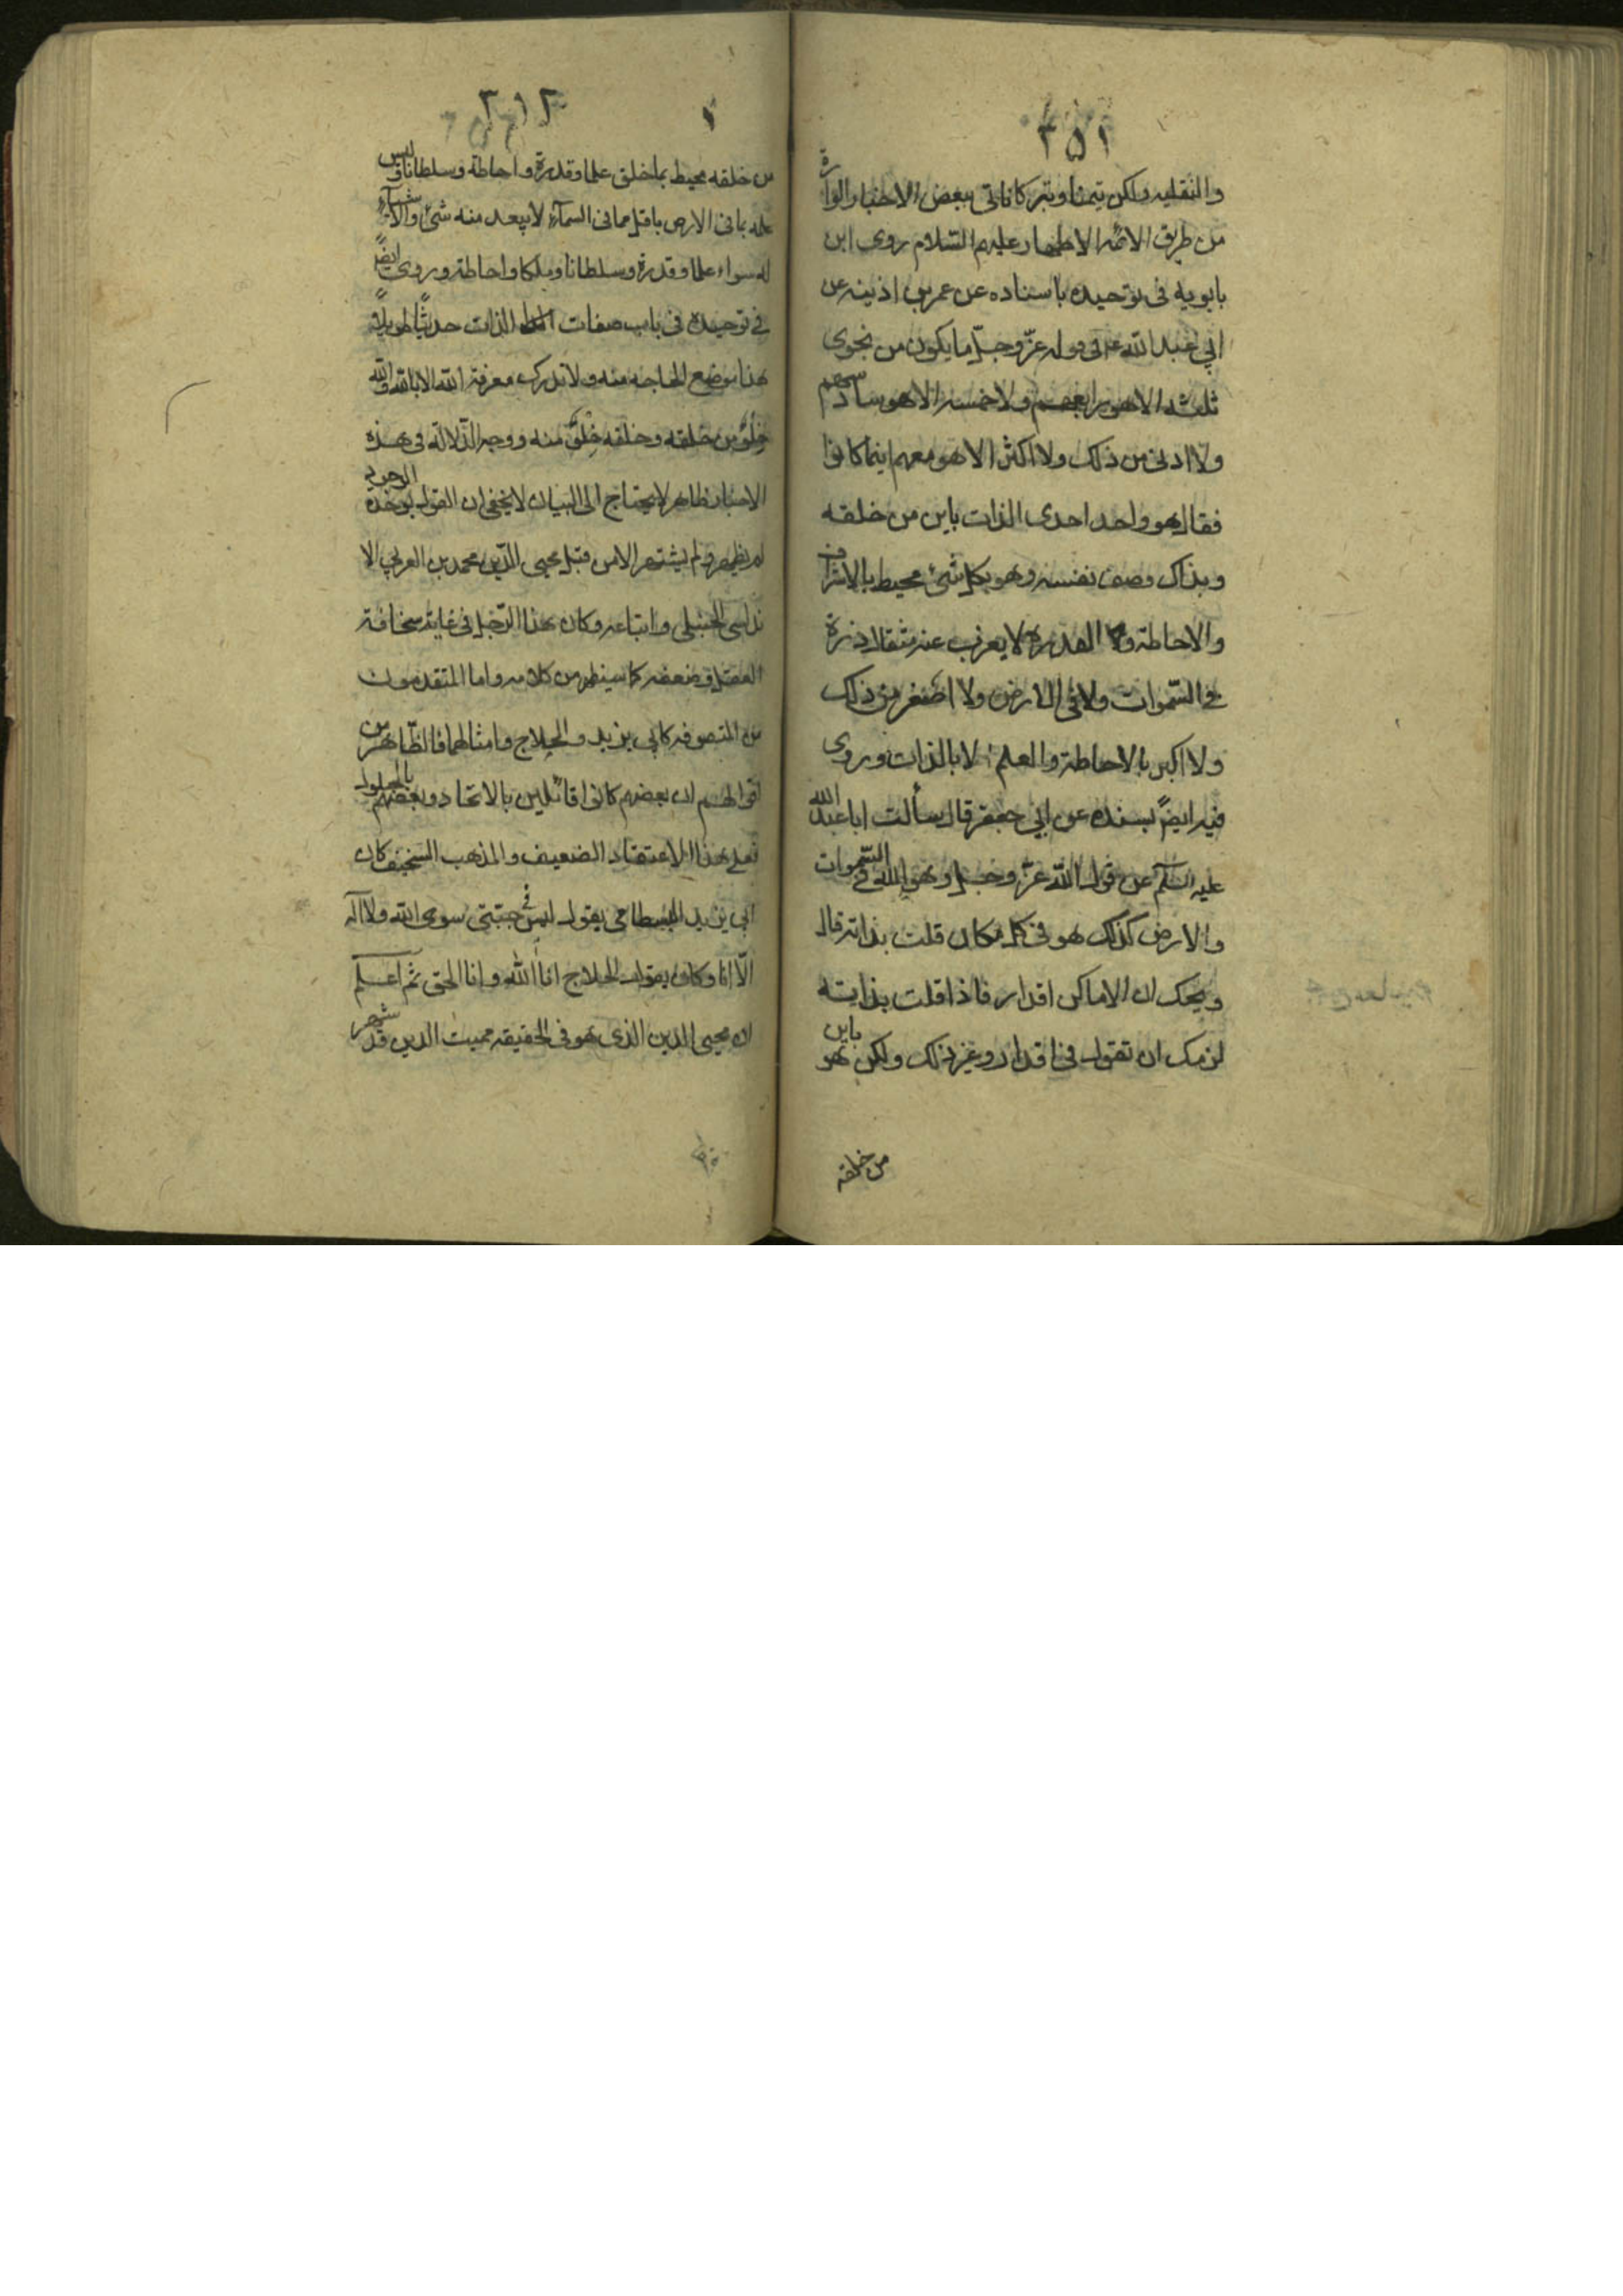 ٢٥١
والنقليه ولكن تيمنا وتبركا ناتى ببعض الاخبار الواردة
من طريق الائمه الاطهار عليهم السّلام روى ابن
بابويه فى توحيده باسناده عن عمر بن اذينه عن
ابي عبد الله فى قوله عزّ وجلّ ما يكون من نجوى
ثلثه الا هو رابعهم ولا خمسه الا هو سادسهم
ولا ادنى من ذلك ولا اكثر الا هو معهم اينما كانوا
فقال هو واحد احدى الذات باين من خلقه
وبذاك وصف نفسه وهو بكل شئ محيط بالاشراف
والاحاطة والقدرة لا يعزب عنه مثقال ذرة
فى السّموات ولا فى الارض ولا اصغر من ذلك
ولا اكبر بالاحاطة والعلم لا بالذات وروى
فيه ايضً بسنده عن ابي جعفر قال سألت ابا عبد الله
عليه السّلم عن قول الله عزّ وجل وهو الله فى السّموات
والارض كذلك هو فى كل مكان قلت بذاته قال
ويحك ان الاماكن اقدار فاذا قلت بذاته
لزمك ان تقول فى اقدار وغير ذلك ولكن هو باين
من خلقه
من خلقه محيط بما خلق علما وقدرة واحاطة وسلطانا وليس
علمه بما فى الارض باقل مما فى السمآء لا يبعد منه شئ والاشيآء
له سواء علما وقدرة وسلطانا وملكا واحاطة وروى ايضً
فى توحيده فى باب صفات الذات حديثًا طويلاً
هذا موضع الحاجه منه ولا تدرك معرفة الله الا بالله والله
خِلْوٌ من خلقه وخلقه خِلْوٌ منه ووجه الدّلالة فى هذه
الاخبار ظاهر لا يحتاج الى البيان لا يخفى ان القول بوحدة الوجود
لم يظهر ولم يشتهر الا من قبل محيى الدّين محمد بن العربي الا
ندلسى الحنبلى واتباعه وكان هذا الرّجل فى غاية سخافة
العقل وضعفه كما سيظهر من كلامه واما المتقدمون
من المتصوفه كابي يزيد والحلاج وامثالهما فالظّاهر من
اقوالهم ان بعضهم كانوا قائلين بالاتحاد وبعضهم بالحلول
فعلى هذا الاعتقاد الضعيف والمذهب السخيف كان
ابي يزيد البسطامى يقول ليس فى جبتى سوى الله ولا اله
الّا انا وكان يقول الحلاج انا الله وانا الحق ثم اعلم
ان محيى الدين الذى هو فى الحقيقه مميت الدين قد شهر